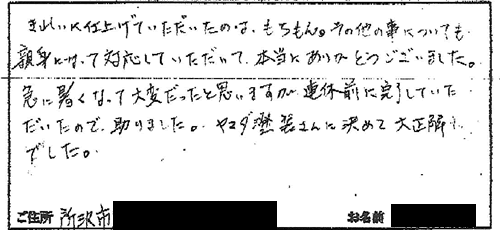 きれいに仕上げていただいたのは、もちろん。その他の事についても
親身になって対応していただいて、本当にありがとうございました。
急に暑くなって大変だったと思いますが、連休前に完了していた
だいたので、助りました。ヤマダ塗装さんに決めて大正解
でした。
ご住所 所沢市 お名前